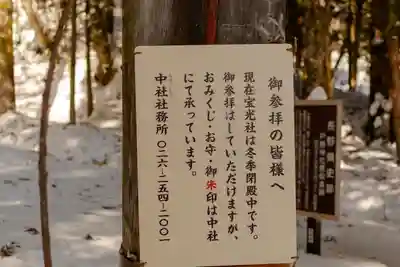 御参拝の皆様へ
現在宝光社は冬季閉殿中です。
御参拝はしていただけますが、
おみくじ・お守・御朱印は中社
にて承っています。
中社社務所 〇二六-二五四-二〇〇一